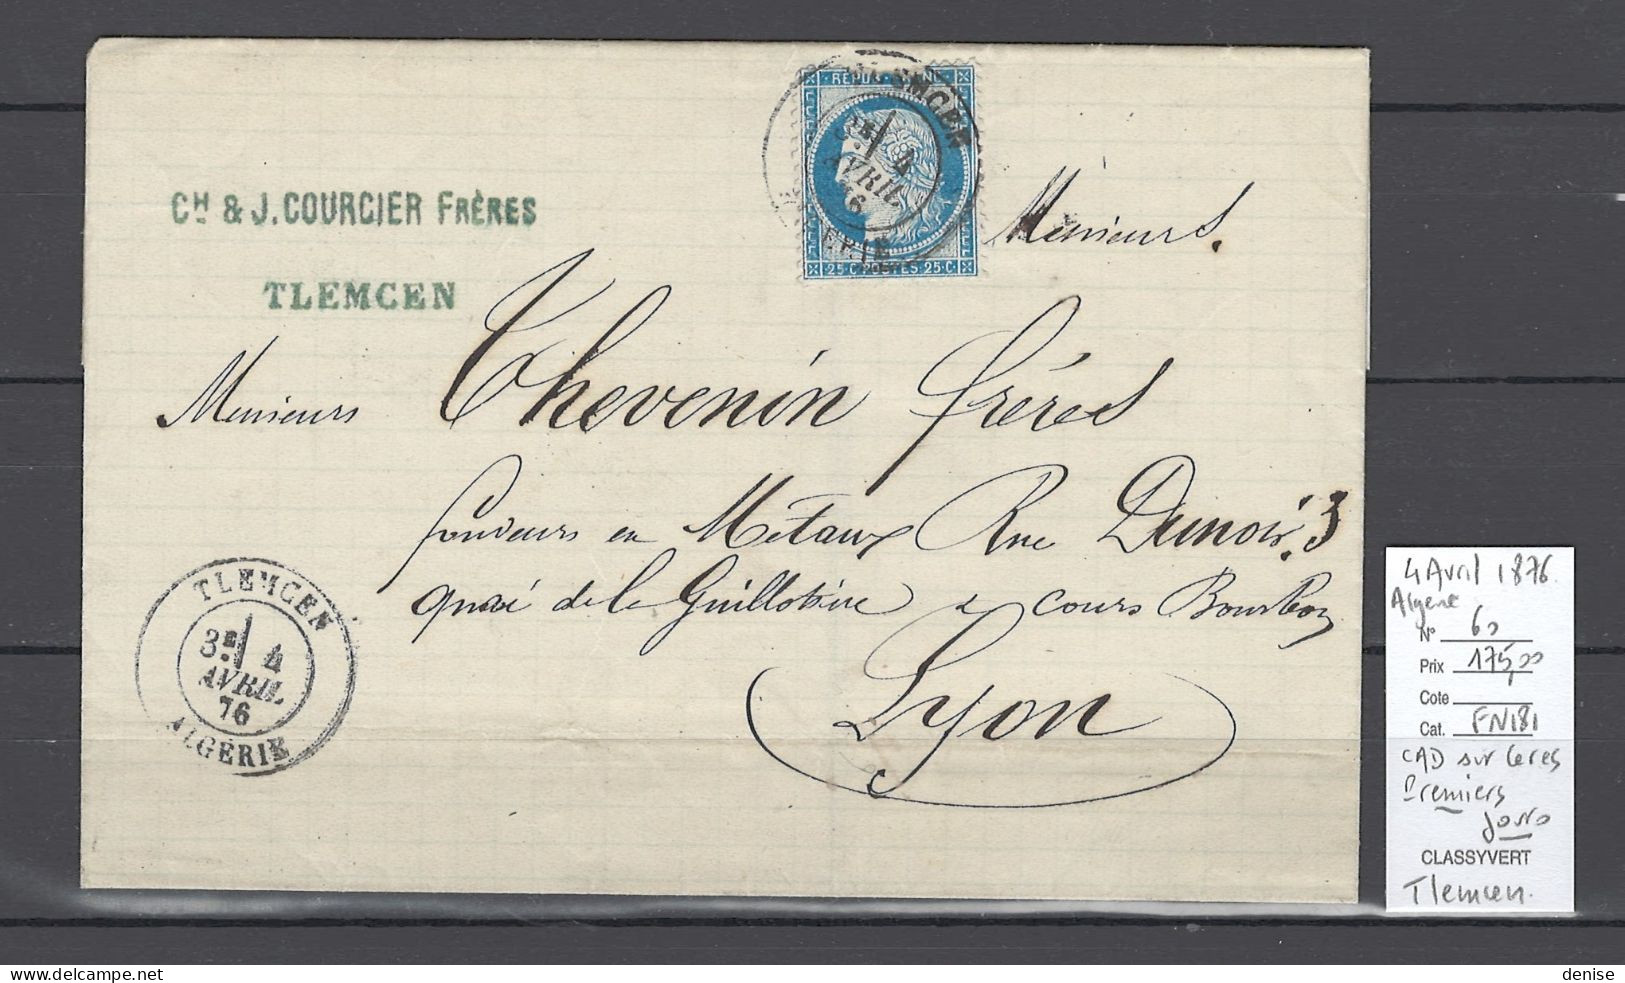 REPUB. FRANC.
TLEMCEN
3E 4
AVRIL
76
ALGERIE
25 C. POSTES 25 C.
CH & J. COURCIER FRÈRES
TLEMCEN
Messieurs.
Messieurs Thevenin frères
fondeurs en Métaux Rue Dunoir. 3
quai de la Guillotière & cours Bourbon
Lyon
TLEMCEN
3E 4
AVRIL
76
ALGÉRIE
4 Avril 1876.
Algerie
N° 60
Prix 175,00
Cote
Cat. FN181
CAD sur Ceres
Premiers
Jours
CLASSYVERT
Tlemcen.
denise